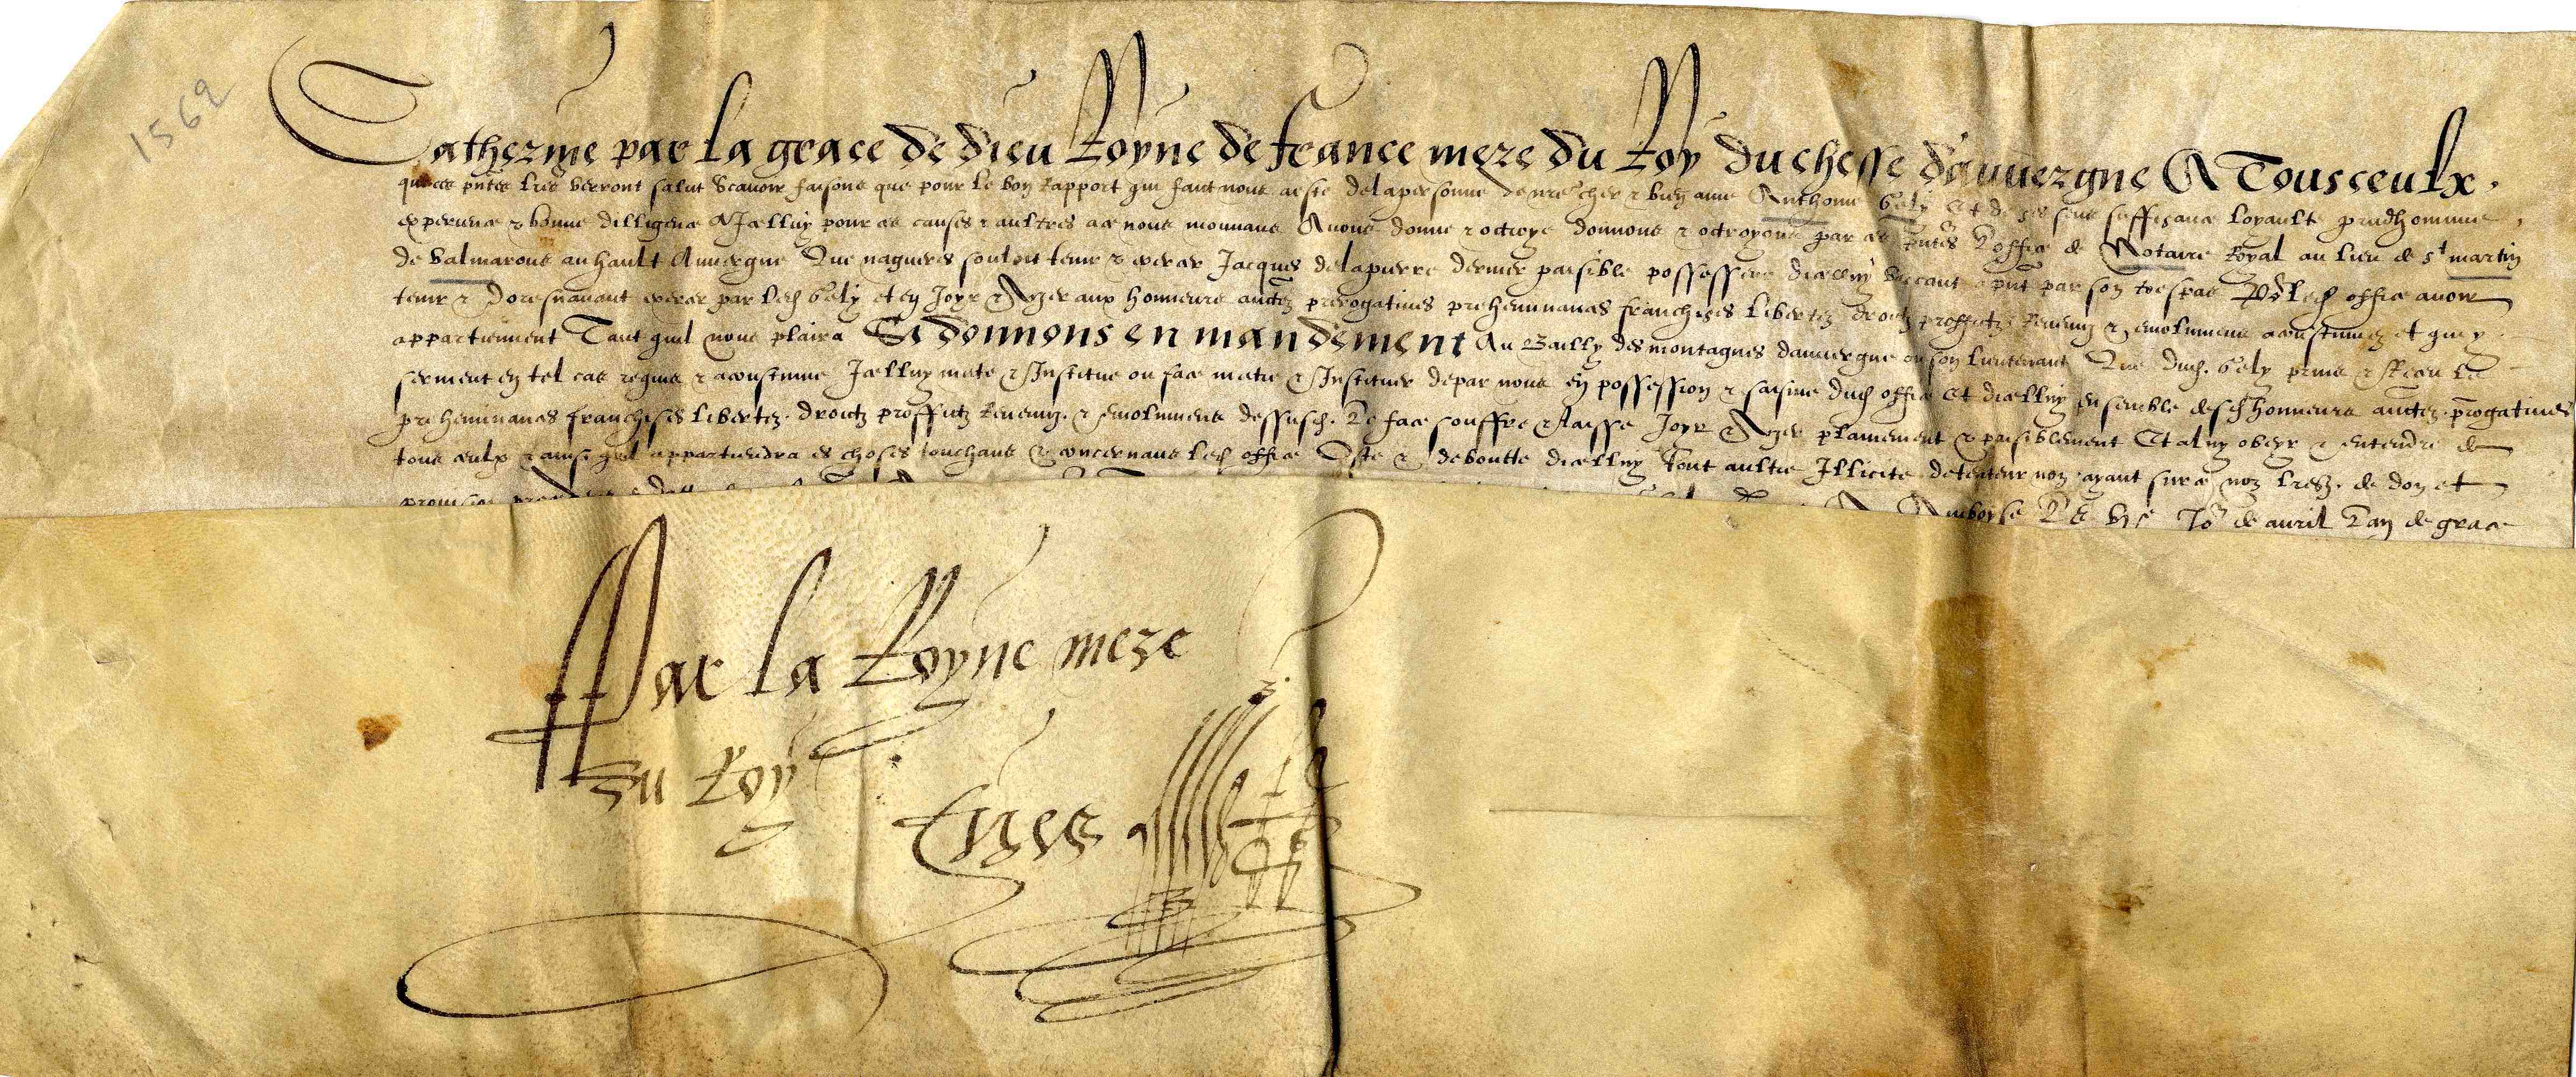 1562
Catherine par la grace de dieu Royne de france mere du Roy duchesse dauvergne A Tous ceulx
que ces pntes lres verront salut Scavoir faisons que pour le bon rapport qui faict nous a este de la personne de nre cher & bien ame Anthoine Gely Et de ses sens suffisance loyaulte preudhommie
experience & bonne dilligence A Icelluy pour ces causes & aultres ace nous mouvans Avons donne & octroye donnons & octroyons par ces pntes Loffice de Notaire Royal au lieu de st martin
de Valmarous au hault Auvergne Que nagueres souloit tenir & exercer Jacques delapierre dernier paisible possesseur dicelluy vaccant a pnt par son trespas Pour led office avoir
tenir & doresnavant exercer par led Gely et en Joyr & Uzer aux honneurs auctez prerogatives preheminances franchises libertez droictz proffictz Revenuz & emolumens acoustumez et qui y
appartiennent Tant quil nous plaira Si donnons en mandement Au Bailly des montagnes dauvergne ou son lieutenant Que dud. Gely prins & Receu le
serment en tel cas requis & acoustume Icelluy mete & Institue ou face metre & Instituer depar nous en possession & saisine dud office Et dicelluy Ensemble desd honneurs auctez prerogatives
preheminances franchises libertez droictz proffictz Revenuz & emolumens dessusd. Le face souffre & laisse Joyr & Uzer plainement & paisiblement Et a luy obeyr & entendre de
tous ceulx & ainsi quil appartiendra es choses touchans & concernans led office Oste & deboutte dicelluy tout aultre Illicite detenteur non ayant sur ce noz lres. de don et
provision Amboyse Le Jor de avril Lan de grace
Par la Royne mere
du Roy